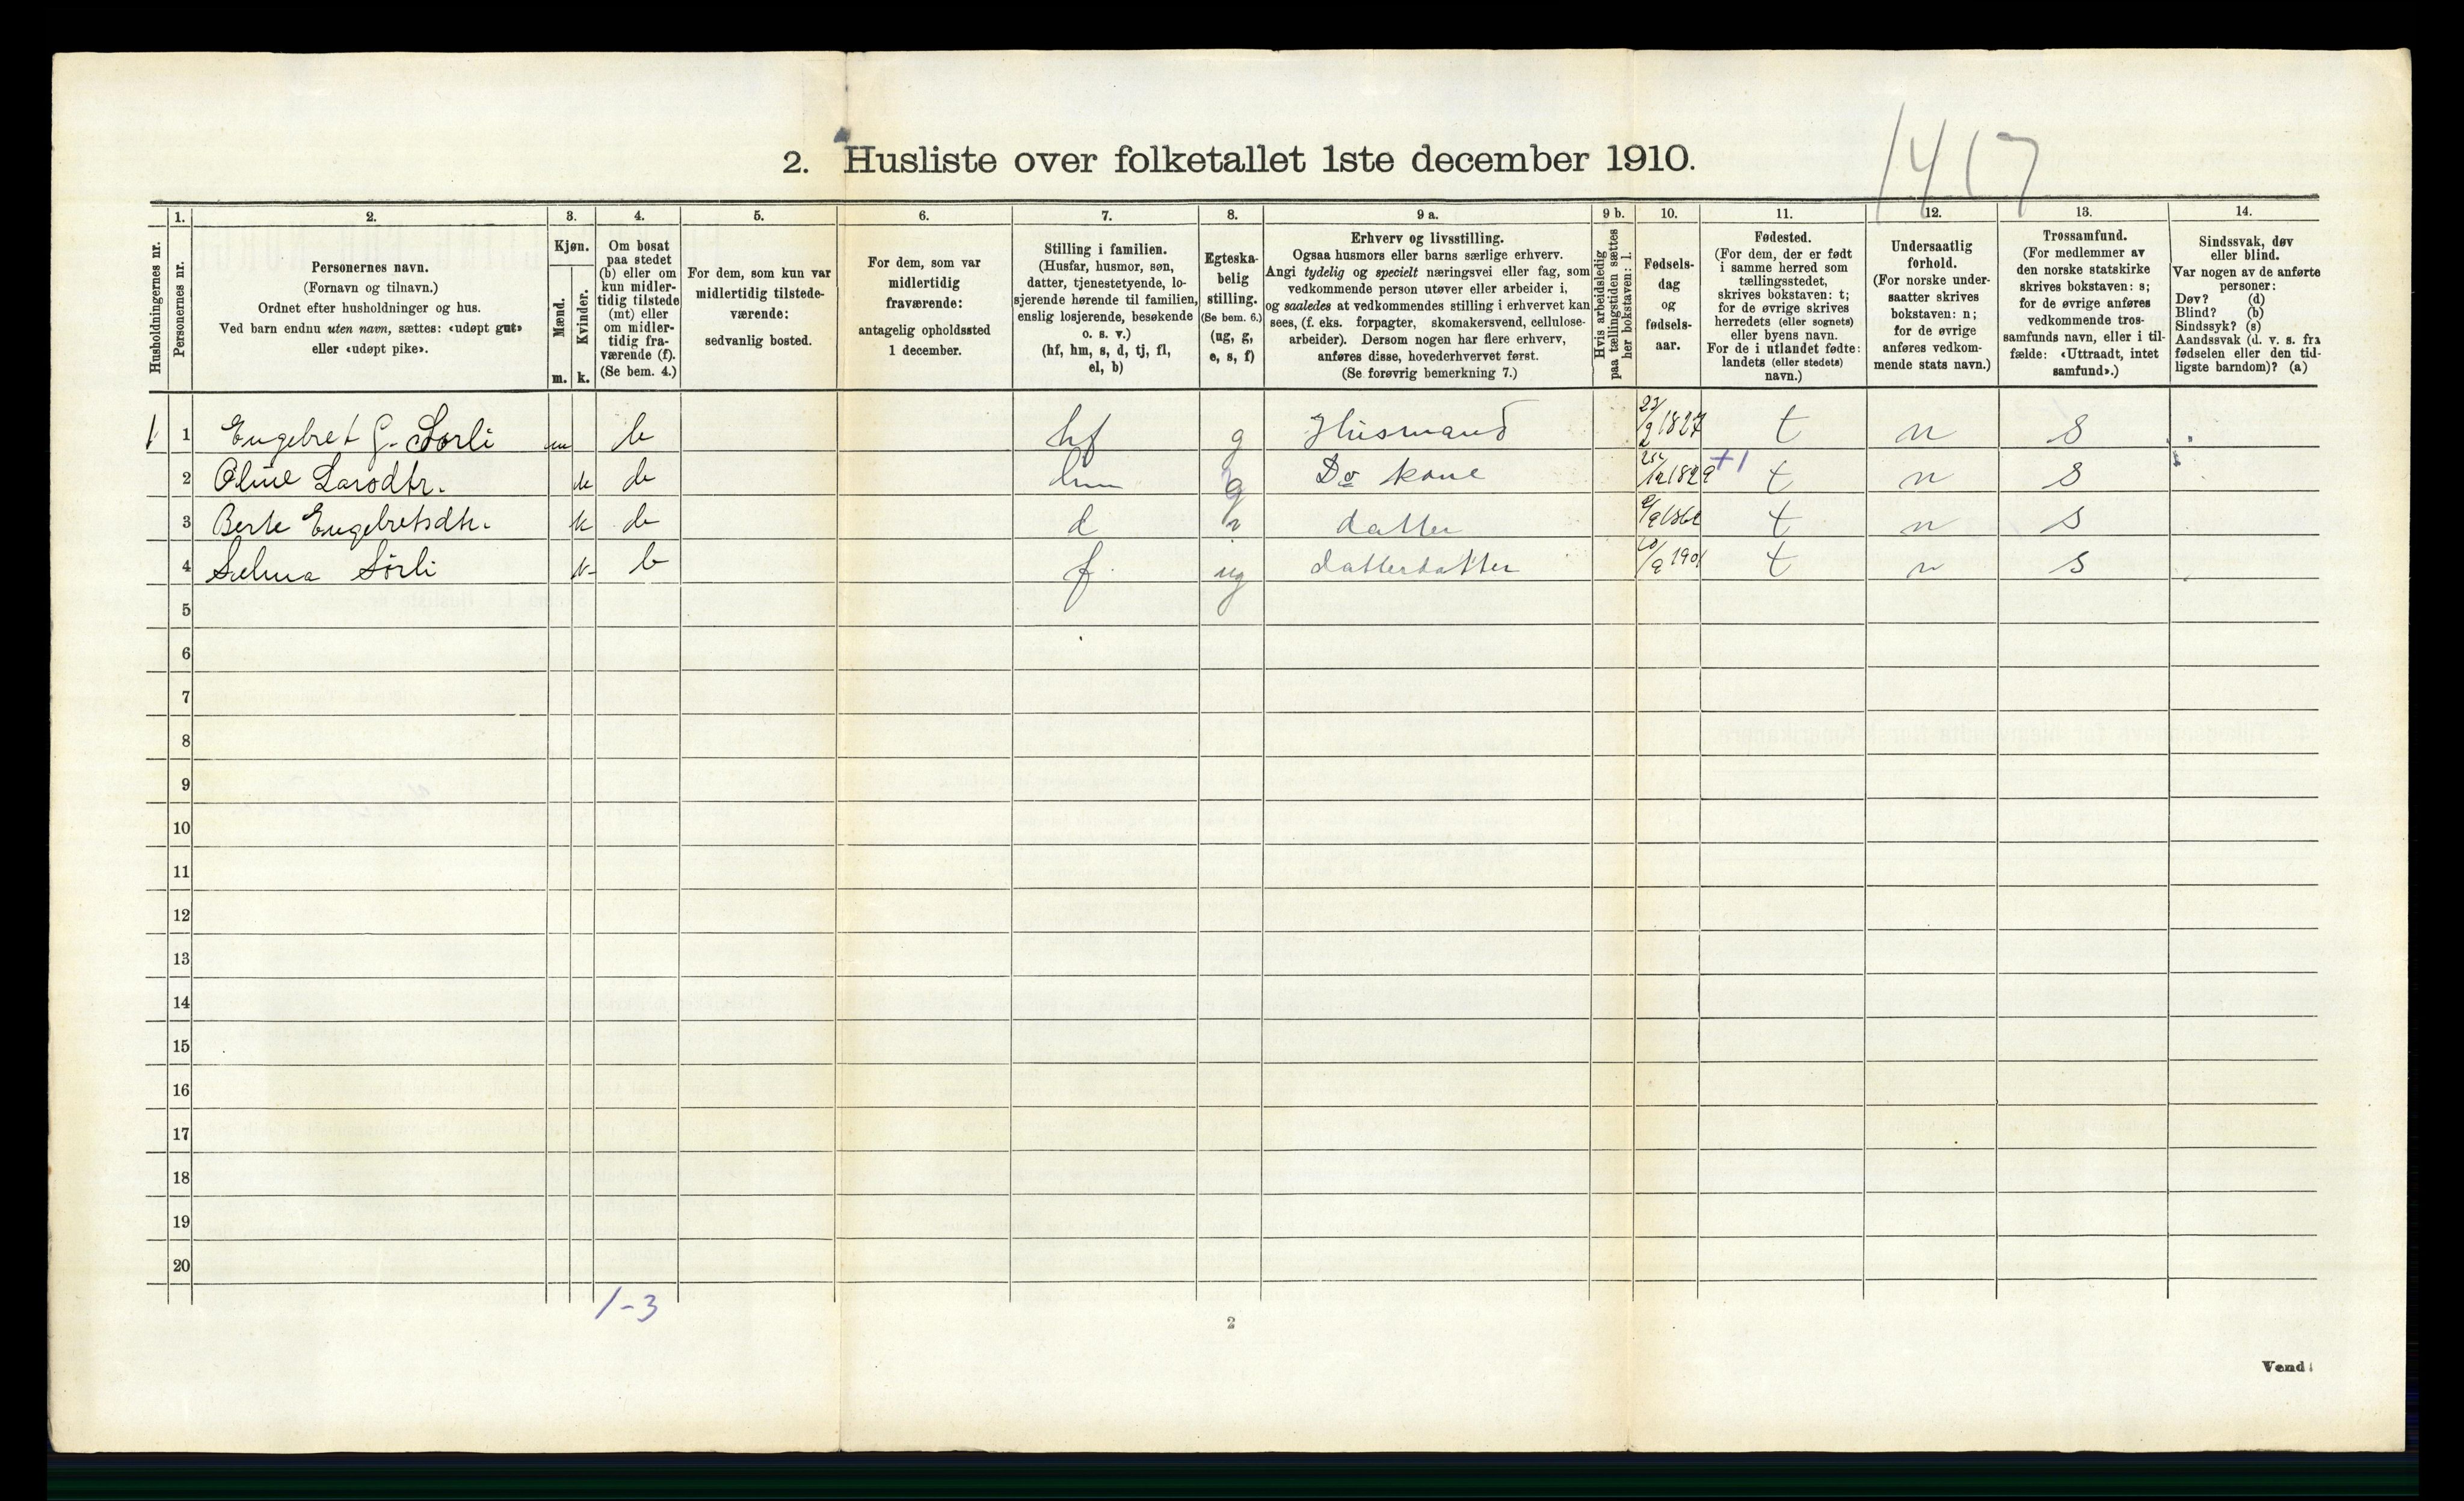 1417
2. Husliste over folketallet 1ste december 1910.
1. 2. 3. 4. 5. 6. 7. 8. 9 a. 9 b. 10. 11. 12. 13. 14.
Husholdningernes nr.
Personernes nr.
Personernes navn.
(Fornavn og tilnavn.)
Ordnet efter husholdninger og hus.
Ved barn endnu uten navn, sættes: «udøpt gut»
eller «udøpt pike».
Kjøn.
Mænd.
Kvinder.
m. k.
Om bosat
paa stedet
(b) eller om
kun midler-
tidig tilstede
(mt) eller
om midler-
tidig fra-
værende (f).
(Se bem. 4.)
For dem, som kun var
midlertidig tilstede-
værende:
sedvanlig bosted.
For dem, som var
midlertidig
fraværende:
antagelig opholdssted
1 december.
Stilling i familien.
(Husfar, husmor, søn,
datter, tjenestetyende, lo-
sjerende hørende til familien,
enslig losjerende, besøkende
o. s. v.)
(hf, hm, s, d, tj, fl,
el, b)
Egteska-
belig
stilling.
(Se bem. 6.)
(ug, g,
e, s, f)
Erhverv og livsstilling.
Ogsaa husmors eller barns særlige erhverv.
Angi tydelig og specielt næringsvei eller fag, som
vedkommende person utøver eller arbeider i,
og saaledes at vedkommendes stilling i erhvervet kan
sees, (f. eks. forpagter, skomakersvend, cellulose-
arbeider). Dersom nogen har flere erhverv,
anføres disse, hovederhvervet først.
(Se forøvrig bemerkning 7.)
Hvis arbeidsledig
paa tællingstiden sættes
her bokstaven: l.
Fødsels-
dag
og
fødsels-
aar.
Fødested.
(For dem, der er født
i samme herred som
tællingsstedet,
skrives bokstaven: t;
for de øvrige skrives
herredets (eller sognets)
eller byens navn.
For de i utlandet fødte:
landets (eller stedets)
navn.)
Undersaatlig
forhold.
(For norske under-
saatter skrives
bokstaven: n;
for de øvrige
anføres vedkom-
mende stats navn.)
Trossamfund.
(For medlemmer av
den norske statskirke
skrives bokstaven: s;
for de øvrige anføres
vedkommende tros-
samfunds navn, eller i til-
fælde: «Uttraadt, intet
samfund».)
Sindssvak, døv
eller blind.
Var nogen av de anførte
personer:
Døv? (d)
Blind? (b)
Sindssyk? (s)
Aandssvak (d. v. s. fra
fødselen eller den tid-
ligste barndom)? (a)
1 1 Engebret G. Sorli m b hf g Husmand 1827 t n s
2 Oline Larsdtr. k b hm g Do kone 1829 +1 t n s
3 Berte Engebretsdtr. k b d datter t n s
4 Selma Sörli k b f ug datterdatter 10/9 1901 t n s
5
6
7
8
9
10
11
12
13
14
15
16
17
18
19
20
1-3
2
Vend!